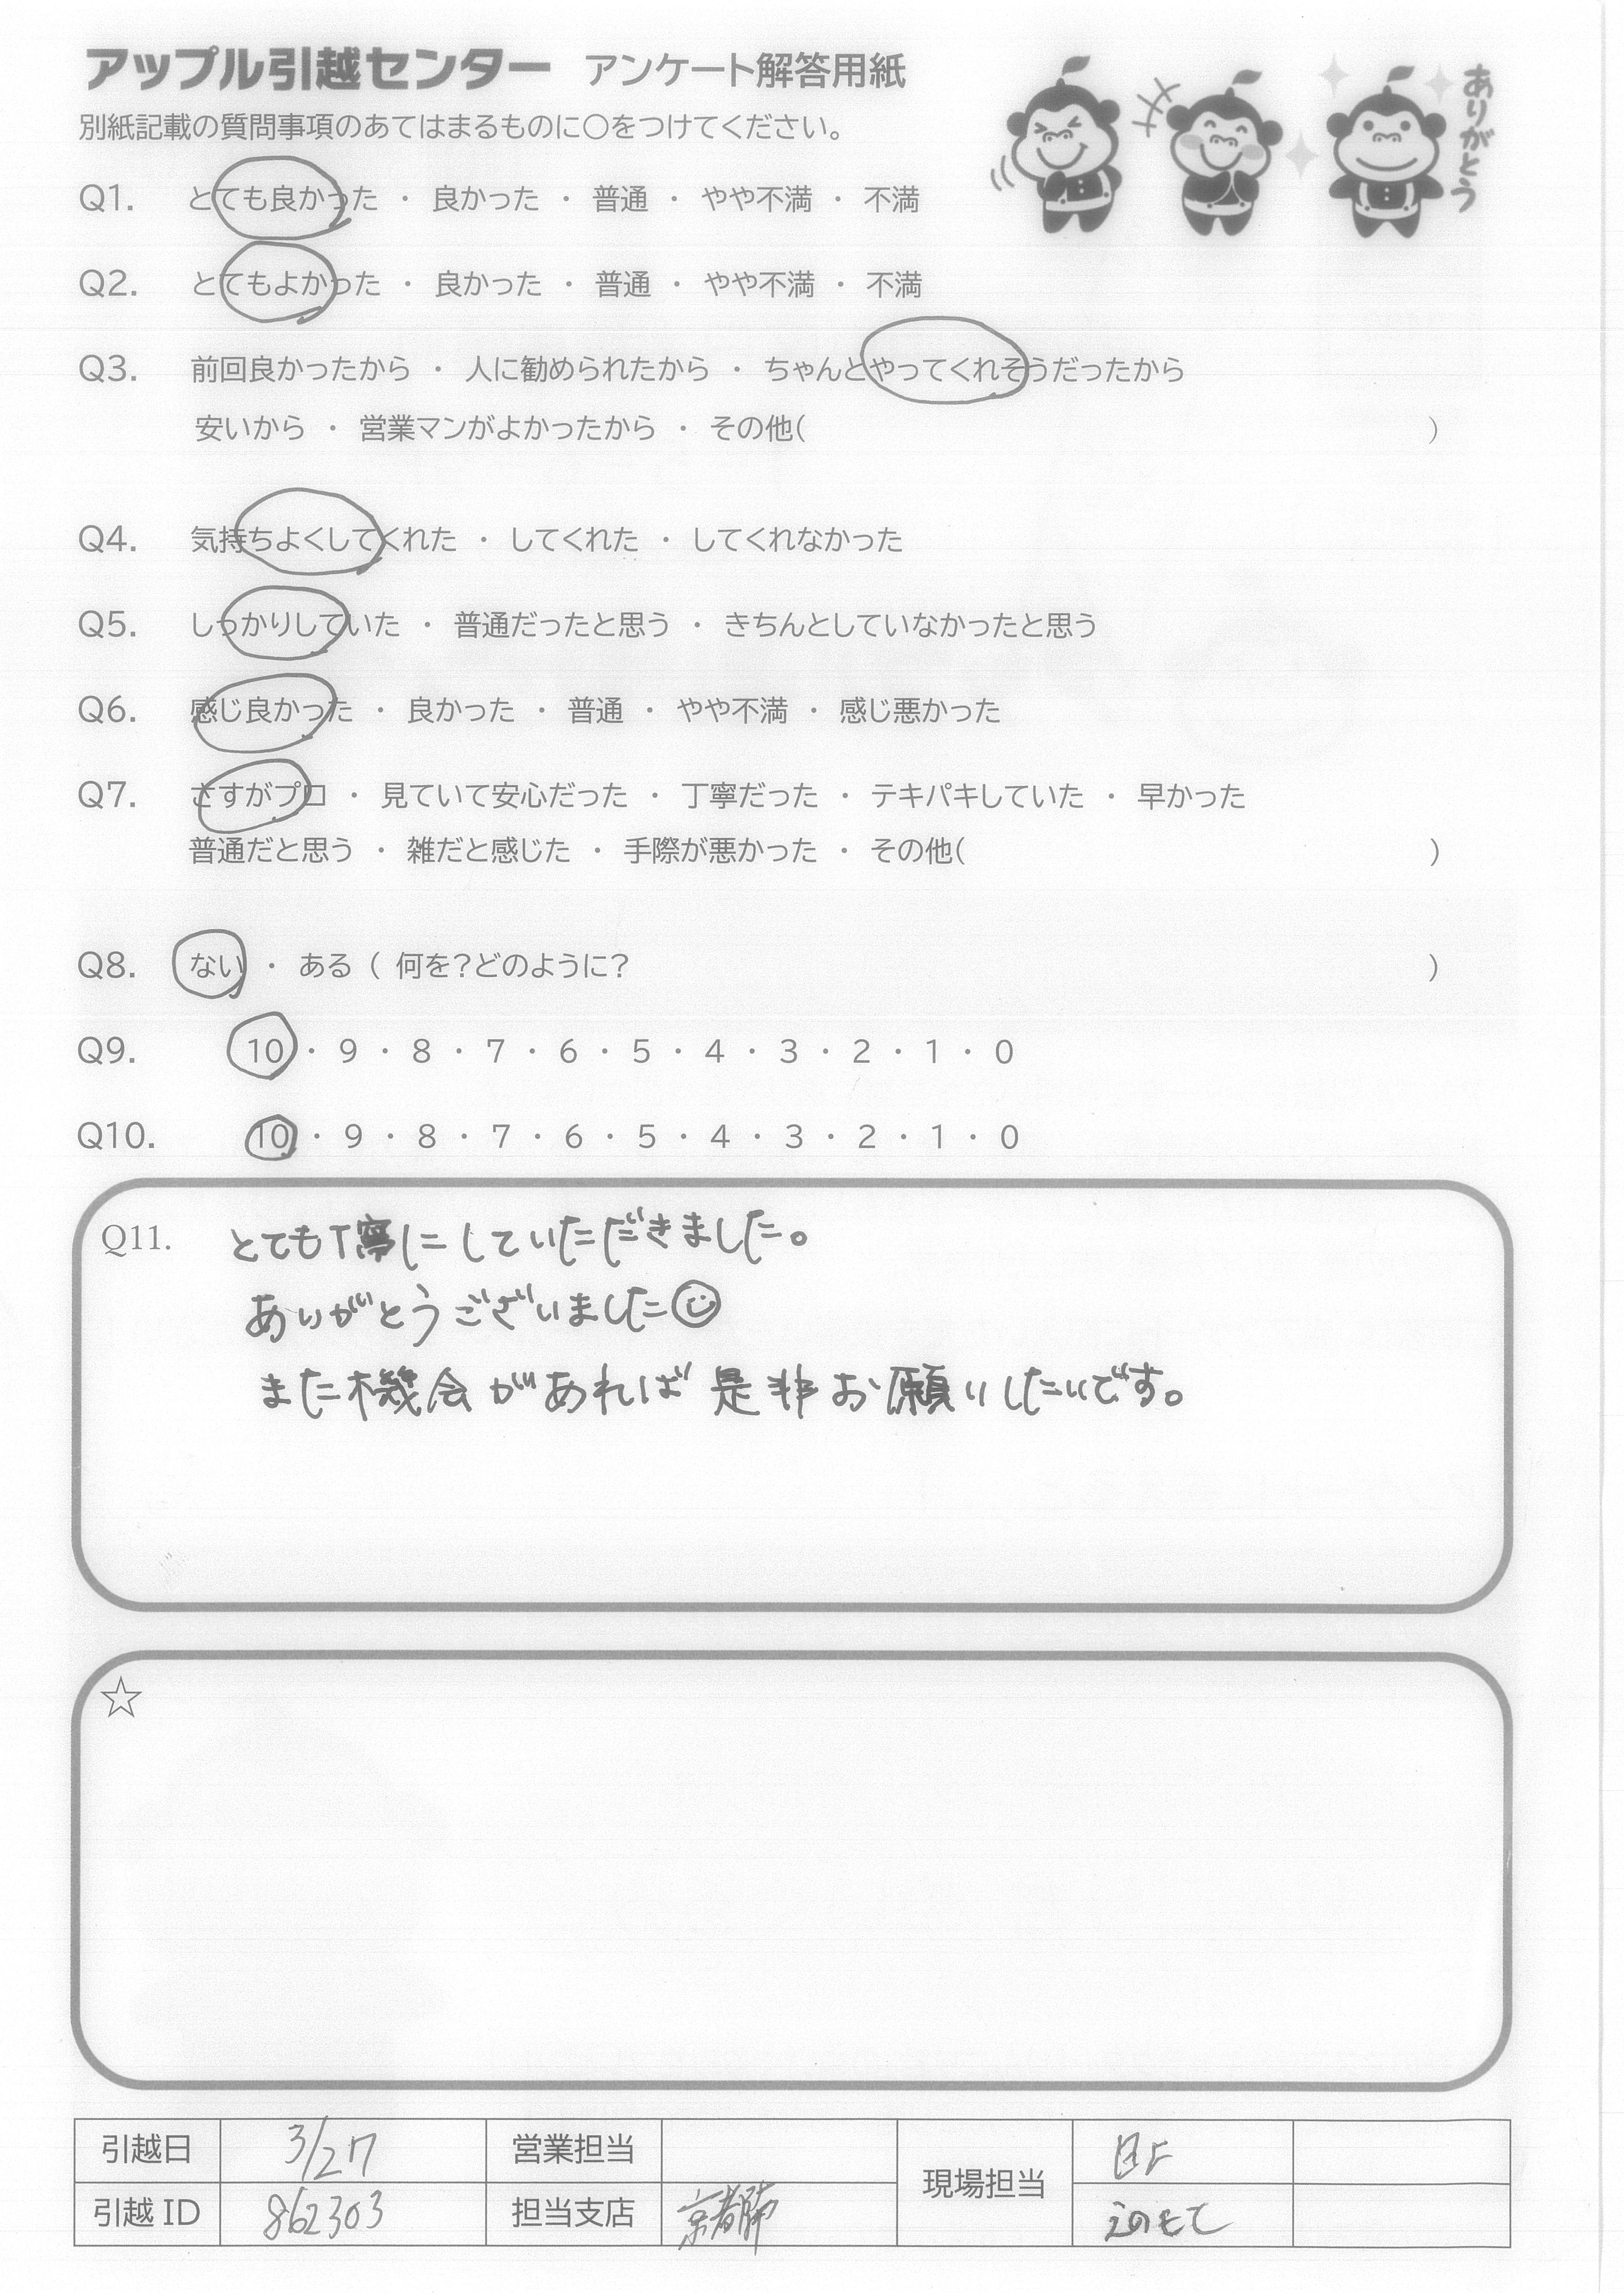 アップル引越センター アンケート解答用紙
ありがとう
別紙記載の質問事項のあてはまるものに○をつけてください。
Q1. とても良かった ・ 良かった ・ 普通 ・ やや不満 ・ 不満
Q2. とてもよかった ・ 良かった ・ 普通 ・ やや不満 ・ 不満
Q3. 前回良かったから ・ 人に勧められたから ・ ちゃんとやってくれそうだったから
安いから ・ 営業マンがよかったから ・ その他( )
Q4. 気持ちよくしてくれた ・ してくれた ・ してくれなかった
Q5. しっかりしていた ・ 普通だったと思う ・ きちんとしていなかったと思う
Q6. 感じ良かった ・ 良かった ・ 普通 ・ やや不満 ・ 感じ悪かった
Q7. さすがプロ ・ 見ていて安心だった ・ 丁寧だった ・ テキパキしていた ・ 早かった
普通だと思う ・ 雑だと感じた ・ 手際が悪かった ・ その他( )
Q8. ない ・ ある ( 何を?どのように? )
Q9. 10 ・ 9 ・ 8 ・ 7 ・ 6 ・ 5 ・ 4 ・ 3 ・ 2 ・ 1 ・ 0
Q10. 10 ・ 9 ・ 8 ・ 7 ・ 6 ・ 5 ・ 4 ・ 3 ・ 2 ・ 1 ・ 0
Q11. とても丁寧にしていただきました。
ありがとうございました☺
また機会があれば是非お願いしたいです。
☆
引越日 3/27 営業担当
現場担当
引越ID 862303 担当支店 京都南